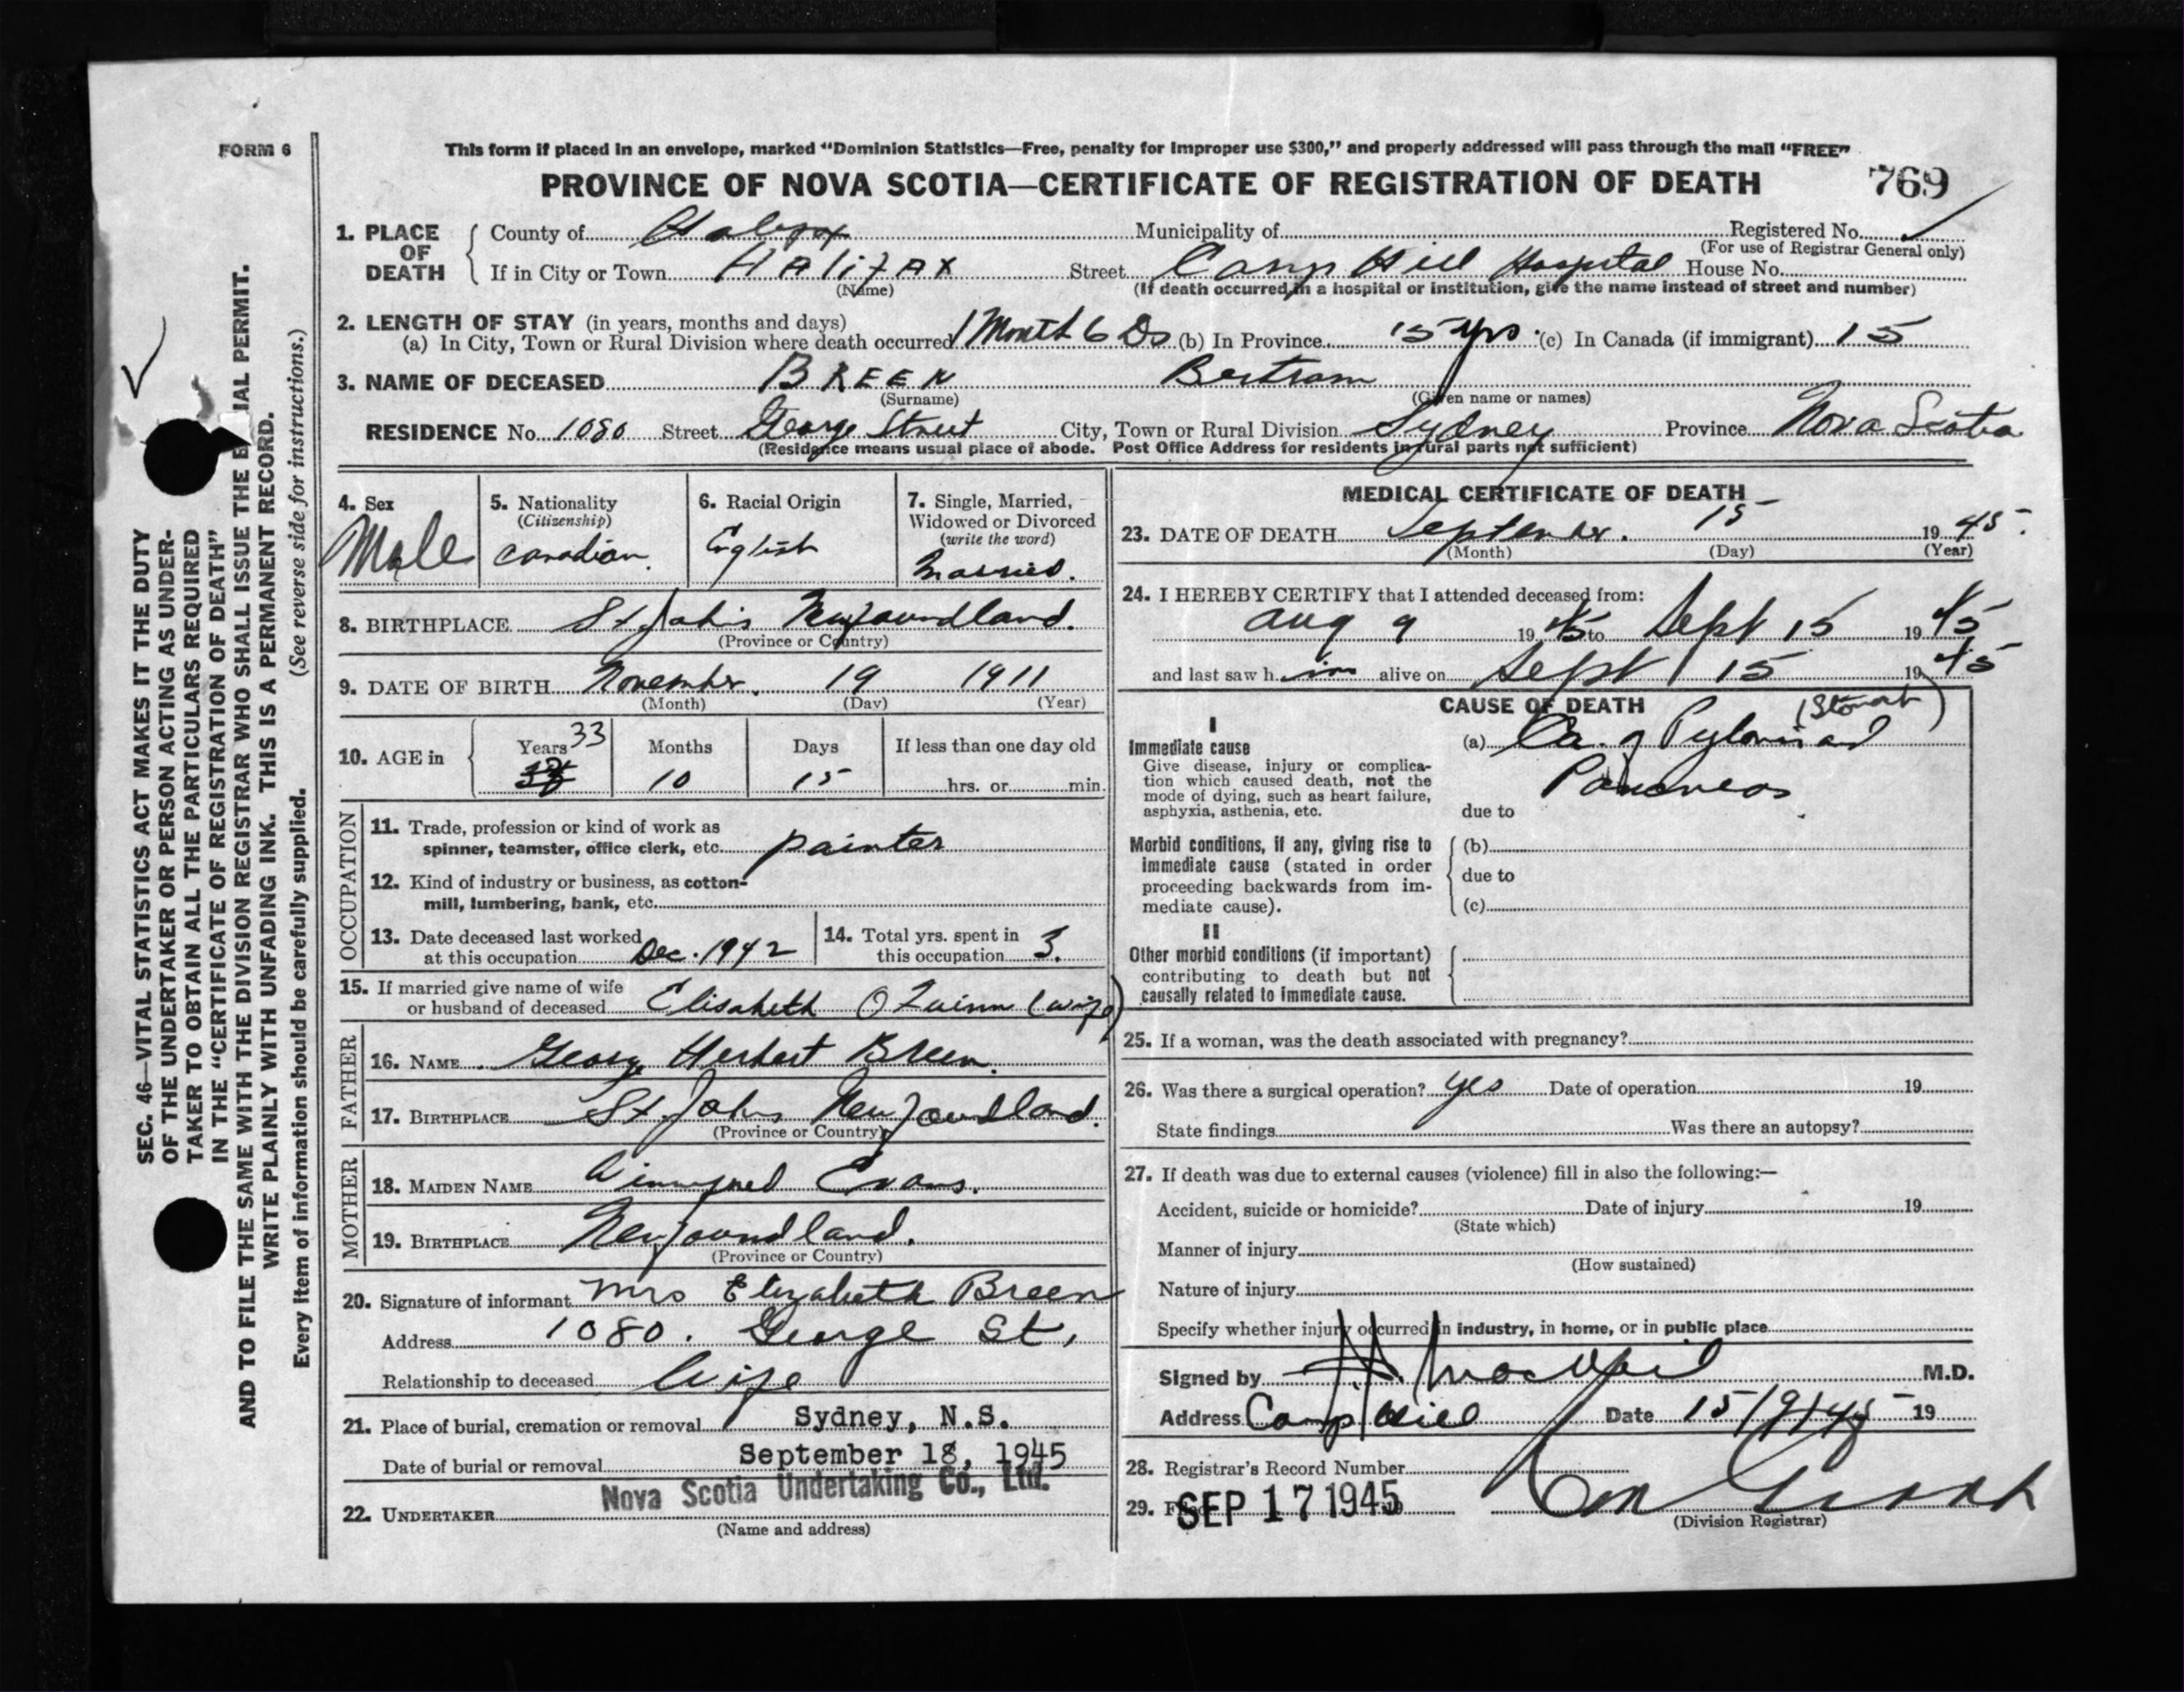 FORM 6
This form if placed in an envelope, marked "Dominion Statistics—Free, penalty for improper use $300," and properly addressed will pass through the mail "FREE"
PROVINCE OF NOVA SCOTIA—CERTIFICATE OF REGISTRATION OF DEATH 769
1. PLACE OF DEATH County of Halifax Municipality of Registered No.
(For use of Registrar General only)
If in City or Town HAlifAX Street Camp Hill Hospital House No.
(Name) (If death occurred in a hospital or institution, give the name instead of street and number)
2. LENGTH OF STAY (in years, months and days)
(a) In City, Town or Rural Division where death occurred 1 Month 6 Ds (b) In Province 15 yrs. (c) In Canada (if immigrant) 15
3. NAME OF DECEASED BREEN Bertram
(Surname) (Given name or names)
RESIDENCE No. 1080 Street George Street City, Town or Rural Division Sydney Province Nova Scotia
(Residence means usual place of abode. Post Office Address for residents in rural parts not sufficient)
4. Sex Male
5. Nationality (Citizenship) Canadian.
6. Racial Origin English
7. Single, Married, Widowed or Divorced (write the word) Married.
8. BIRTHPLACE St John's Newfoundland.
(Province or Country)
9. DATE OF BIRTH November. 19 1911
(Month) (Day) (Year)
10. AGE in Years 33 Months 10 Days 15 If less than one day old hrs. or min.
OCCUPATION
11. Trade, profession or kind of work as
spinner, teamster, office clerk, etc. painter
12. Kind of industry or business, as cotton-
mill, lumbering, bank, etc.
13. Date deceased last worked
at this occupation Dec. 1942
14. Total yrs. spent in
this occupation 3.
15. If married give name of wife
or husband of deceased Elisabeth O Quinn (wife)
FATHER
16. NAME George Herbert Breen.
17. BIRTHPLACE St. Johns Newfoundland.
(Province or Country)
MOTHER
18. MAIDEN NAME Winnifred Evans.
19. BIRTHPLACE Newfoundland.
(Province or Country)
20. Signature of informant Mrs Elizabeth Breen
Address 1080. George St,
Relationship to deceased Wife
21. Place of burial, cremation or removal Sydney, N.S.
Date of burial or removal September 18, 1945
22. UNDERTAKER Nova Scotia Undertaking Co., Ltd.
(Name and address)
MEDICAL CERTIFICATE OF DEATH
23. DATE OF DEATH September. 15 1945.
(Month) (Day) (Year)
24. I HEREBY CERTIFY that I attended deceased from:
Aug 9 1945 to Sept 15 1945
and last saw him alive on Sept 15 1945
CAUSE OF DEATH
I
Immediate cause
Give disease, injury or complica-
tion which caused death, not the
mode of dying, such as heart failure,
asphyxia, asthenia, etc.
(a) Ca. of Pylorus and (Stomach)
Pancreas
due to
Morbid conditions, if any, giving rise to
immediate cause (stated in order
proceeding backwards from im-
mediate cause).
(b)
due to
(c)
II
Other morbid conditions (if important)
contributing to death but not
causally related to immediate cause.
25. If a woman, was the death associated with pregnancy?
26. Was there a surgical operation? yes Date of operation 19
State findings Was there an autopsy?
27. If death was due to external causes (violence) fill in also the following:—
Accident, suicide or homicide? Date of injury 19
(State which)
Manner of injury
(How sustained)
Nature of injury
Specify whether injury occurred in industry, in home, or in public place
Signed by M.D.
Address Camp Hill Date 15/9/45 19
28. Registrar's Record Number
29. Filed SEP 17 1945
(Division Registrar)
SEC. 46—VITAL STATISTICS ACT MAKES IT THE DUTY
OF THE UNDERTAKER OR PERSON ACTING AS UNDER-
TAKER TO OBTAIN ALL THE PARTICULARS REQUIRED
IN THE "CERTIFICATE OF REGISTRATION OF DEATH"
AND TO FILE THE SAME WITH THE DIVISION REGISTRAR WHO SHALL ISSUE THE BURIAL PERMIT.
WRITE PLAINLY WITH UNFADING INK. THIS IS A PERMANENT RECORD.
Every item of information should be carefully supplied. (See reverse side for instructions.)